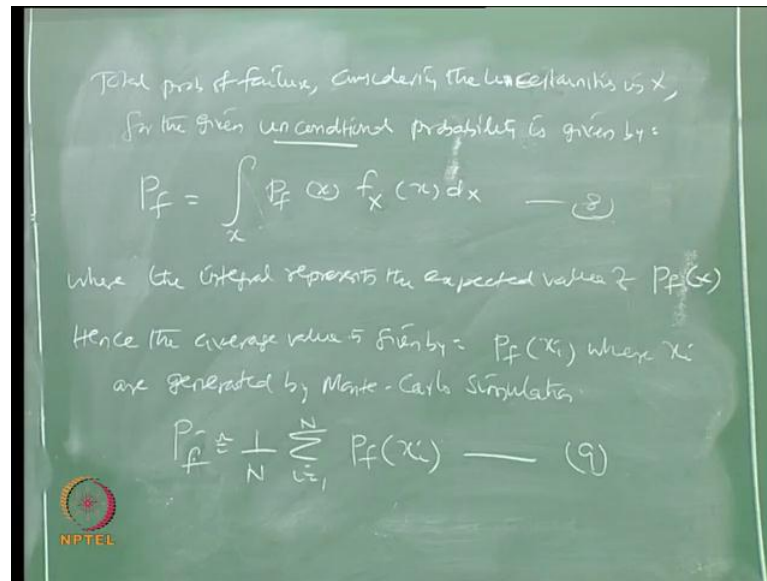 Total prob of failure, considering the uncertainities in X,
for the given uncondtional probability is given by:
P_f = ∫_x P_f (x) f_x (x) dx — (8)
where the integral represents the expected value of P_f(x)
Hence the average value is given by: P_f(x_i) where x_i
are generated by Monte-Carlo Simulation
P_f ≅ 1/N Σ_{i=1}^{N} P_f(x_i) — (9)
NPTEL